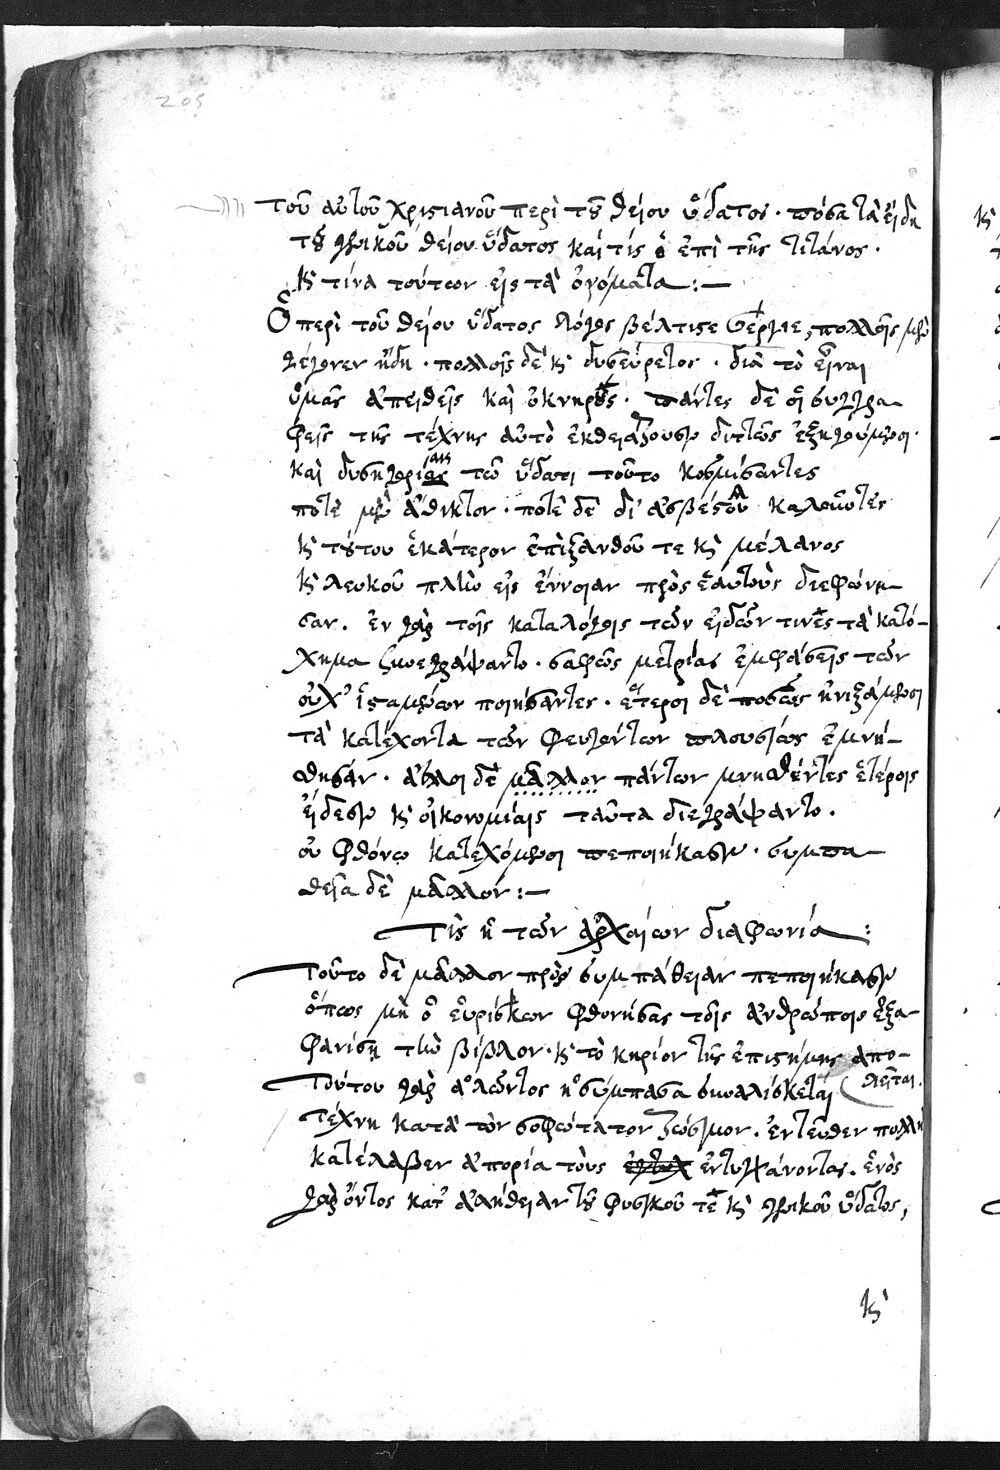 205
Τοῦ αὐτοῦ χριστιανοῦ περὶ τοῦ θείου ὕδατος · πόσα τὰ εἴδη
τοῦ γενικοῦ θείου ὕδατος καὶ τίς ὁ ἐπὶ τῆς τιτάνος ·
κ τίνα τούτων εἰς τὰ ὀνόματα : —
Ὁ περὶ τοῦ θείου ὕδατος λόγος βέλτιστε Σέργιε, πολλοῖς μὲν
γέγονεν ἤδη · πολλοῖς δὲ κ δυσεύρετος · διὰ τὸ εἶναι
ὑμᾶς ἀπειθεῖς καὶ ὀκνηρούς · πάντες δὲ οἱ συγγρα
φεῖς τῆς τέχνης αὐτὸ ἐκθειάζουσιν διττῶς ἐξηγούμενοι ·
καὶ δυσηγορίαν τῶ ὕδατι τοῦτο κοσμήσαντες
ποτὲ μὲν ἄθικτον · ποτὲ δὲ δι' ἀσβέστου καλοῦντες
κ τούτου ἑκάτερον ἐπὶ ξανθοῦ τε κ μέλανος
κ λευκοῦ πλὴν εἰς ἔννοιαν πρὸς ἑαυτοὺς διεφώνη-
σαν. ἐν γὰρ τοῖς καταλόγοις τῶν εἰδῶν τινὲς τὰ κατό-
χημα συνεγράψαντο · σαφῶς μετρίας ἐμφάσεις τῶν
οὐχ' ἱσταμένων ποιήσαντες · ἕτεροι δὲ ποσῶς ἠνιξάμενοι
τὰ κατέχοντα τῶν φευγόντων πλουσίως ἐμνή-
θησαν · ἄλλοι δὲ μᾶλλον πάντων μνηθέντες ἑτέροις
εἴδεσιν κ οἰκονομίαις ταῦτα διεγράψαντο .
οὐ φθόνῳ κατεχόμενοι πεποιήκασιν · συμπα
θεία δὲ μᾶλλον : —
Τίς ἡ τῶν ἀρχαίων διαφωνία :
Τοῦτο δὲ μᾶλλον πρὸς συμπάθειαν πεποιήκασιν
ὅπως μὴ ὁ εὑρίσκων φθονήσας τοῖς ἀνθρώποις ἐξα
φανίση τὴν βίβλον · κ τὸ κηρίον τῆς ἐπιστήμης ἀπο-
λεῖται.
Τούτου γὰρ ἁλῶντος ἡ σύμπασα συναλίσκεται
τέχνη κατὰ τὸν σοφώτατον Ζώσιμον . ἐντεῦθεν πολλὴ
κατέλαβεν ἀπορία τοὺς ἐντυγχάνοντας. ἑνὸς
γὰρ ὄντος κατ' ἀλήθειαν τοῦ φυσικοῦ τὲ κ γενικοῦ ὕδατος,
κ